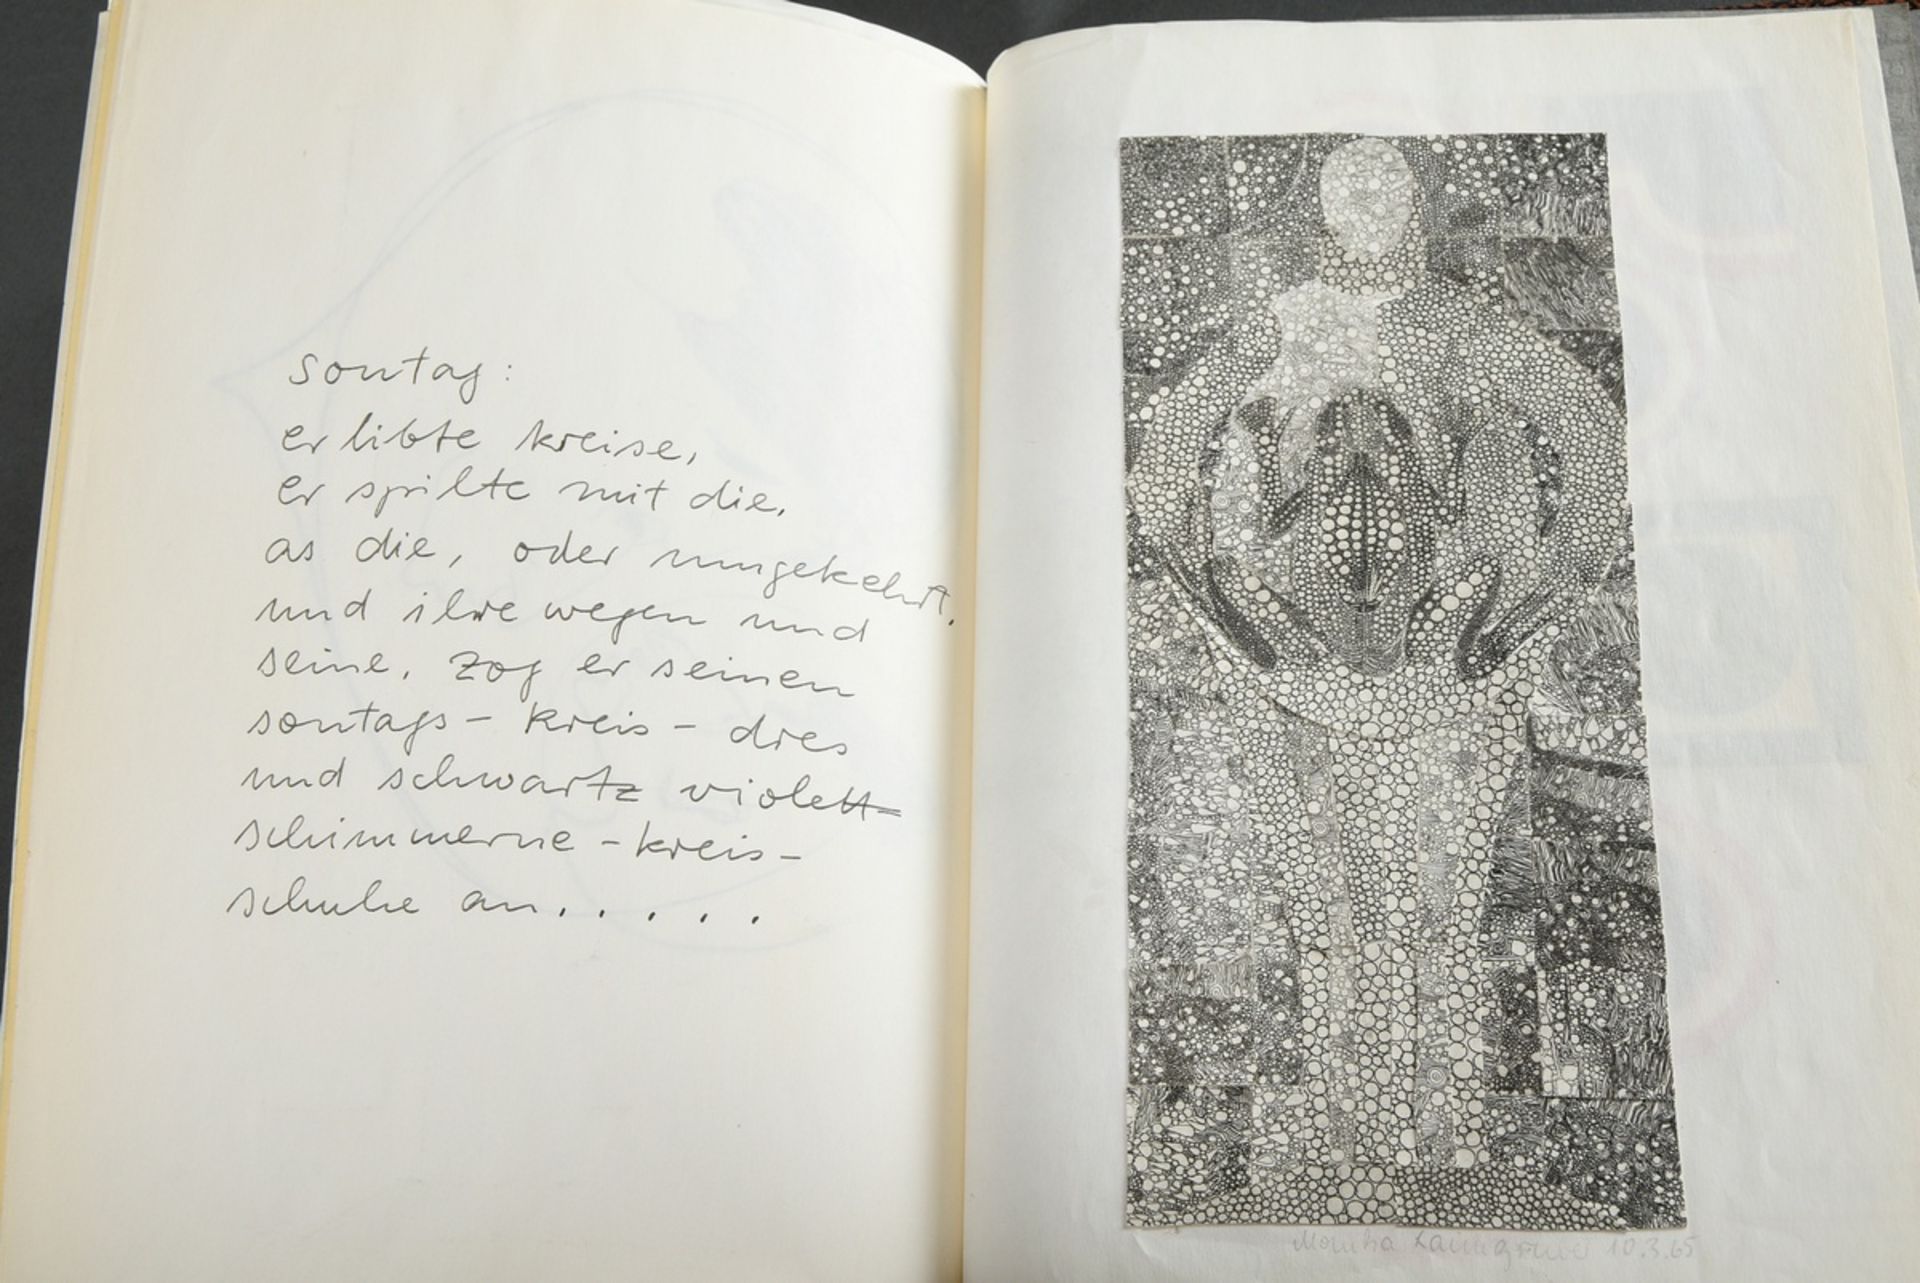 sontag:
er libte kreise,
er spilte mit die,
as die, oder umgekehrt.
und ihre wegen und
seine, zog er seinen
sontags - kreis - dres
und schwartz violett=
schimmerne - kreis -
schuhe an.....
Monika 10.3.65